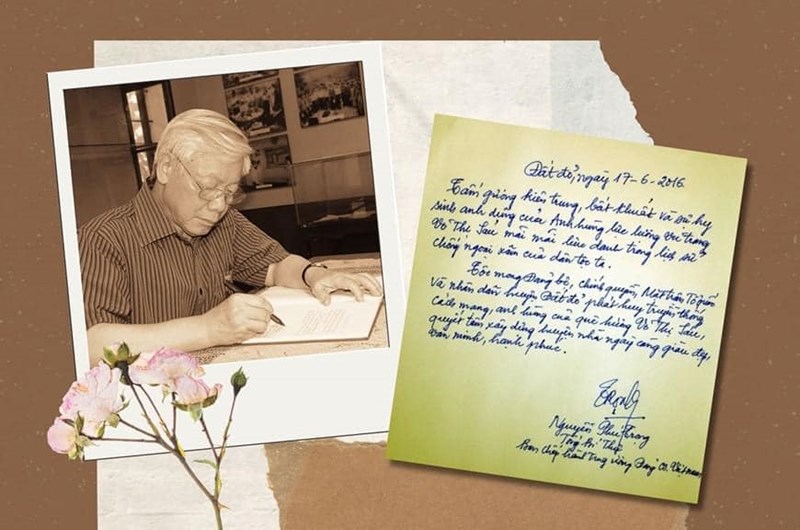 Đất đỏ, ngày 17-6-2016
Tấm gương kiên trung, bất khuất và sự hy
sinh anh dũng của Anh hùng lực lượng vũ trang
Võ Thị Sáu mãi mãi lưu danh trong lịch sử
chống ngoại xâm của dân tộc ta.
Tôi mong Đảng bộ, chính quyền, Mặt trận Tổ quốc
và nhân dân huyện Đất đỏ phát huy truyền thống
cách mạng, anh hùng của quê hương Võ Thị Sáu,
quyết tâm xây dựng huyện nhà ngày càng giàu đẹp,
văn minh, hạnh phúc.
Trọng
Nguyễn Phú Trọng
Tổng Bí Thư
Ban chấp hành Trung ương Đảng CS Việt nam